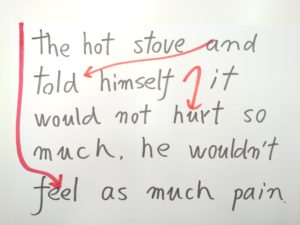 The hot stove and
told himself it
would not hurt so
much, he wouldn't
feel as much pain.